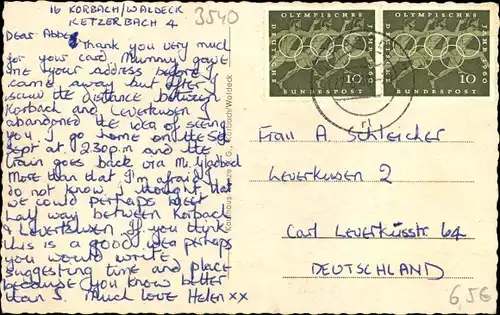 16 KORBACH/WALDECK
KETZERBACH 4
3540
Dear Abbe
Thank you very much
for your card Mummy gave
me your address before I
came away but after I
saw the distance between
Korbach and Leverkusen I
abandoned the idea of seeing
you. I go home on the 3rd
Sept at 2.30p.m and the
train goes back via M. Gladbach
More than that I'm afraid I
do not know. I thought that
we could perhaps meet
half way between Korbach
& Leverkusen. If you think
this is a good idea perhaps
you would write
suggesting time and place
because you know better
than I. Much love Helen xx
Korbach/Waldeck
OLYMPISCHES
JAHR 1960
PENTATHLON
10
BUNDESPOST
OLYMPISCHES
JAHR 1960
PENTATHLON
10
BUNDESPOST
Frau A Schleicher
LEVERKUSEN 2
Carl Leverkusstr 64
DEUTSCHLAND
6,5€